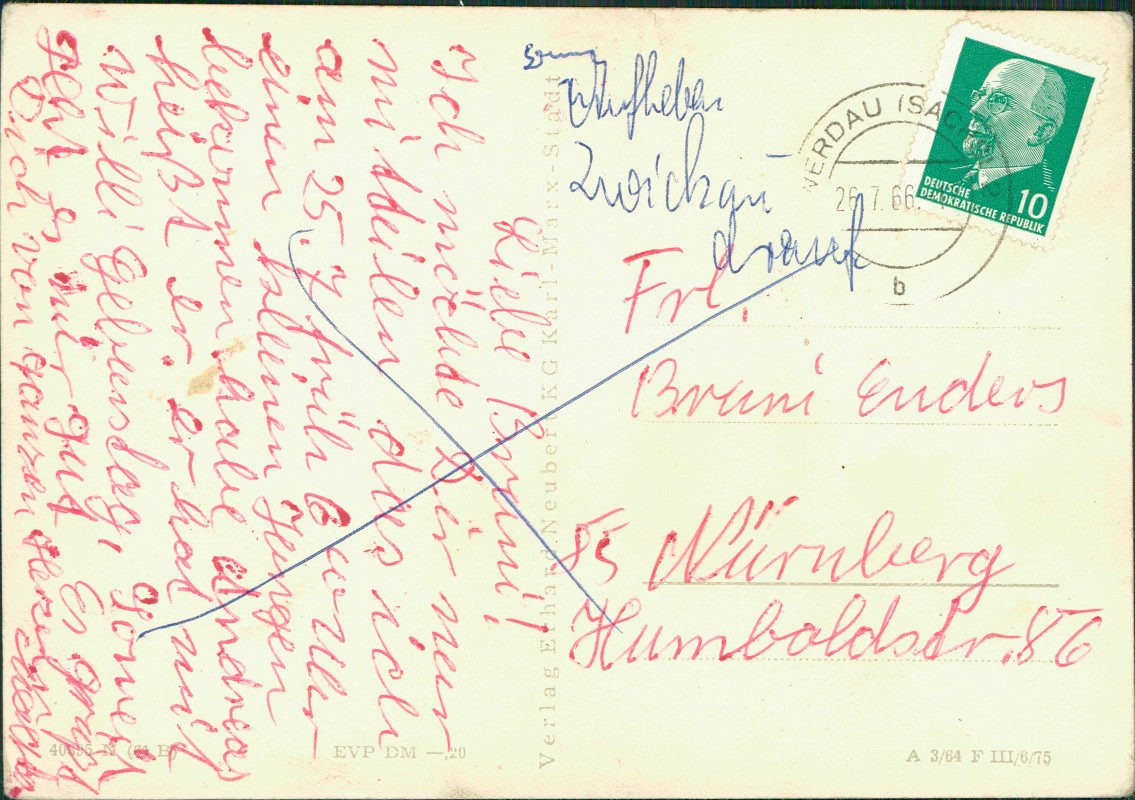 Aufheben
Zwickau
drauf
WERDAU (SACHS)
26.7.66.
b
DEUTSCHE
DEMOKRATISCHE REPUBLIK
10
Liebe Bruni!
Ich möchte Dir nur
mitteilen das ich
am 25. 7 früh 6 Uhr
einen kleinen Jungen
bekommen habe Andreas
heißt er. er hat mit
Willi Geburtstag, Sonst
geht es mir gut Es grüßt
Dich von ganzen Herzen
Verlag Erhard Neubert KG Karl-Marx-Stadt
Frl.
Bruni Enders
85 Nürnberg
Humboldstr. 86
EVP DM —,20
A 3/64 F III/6/75